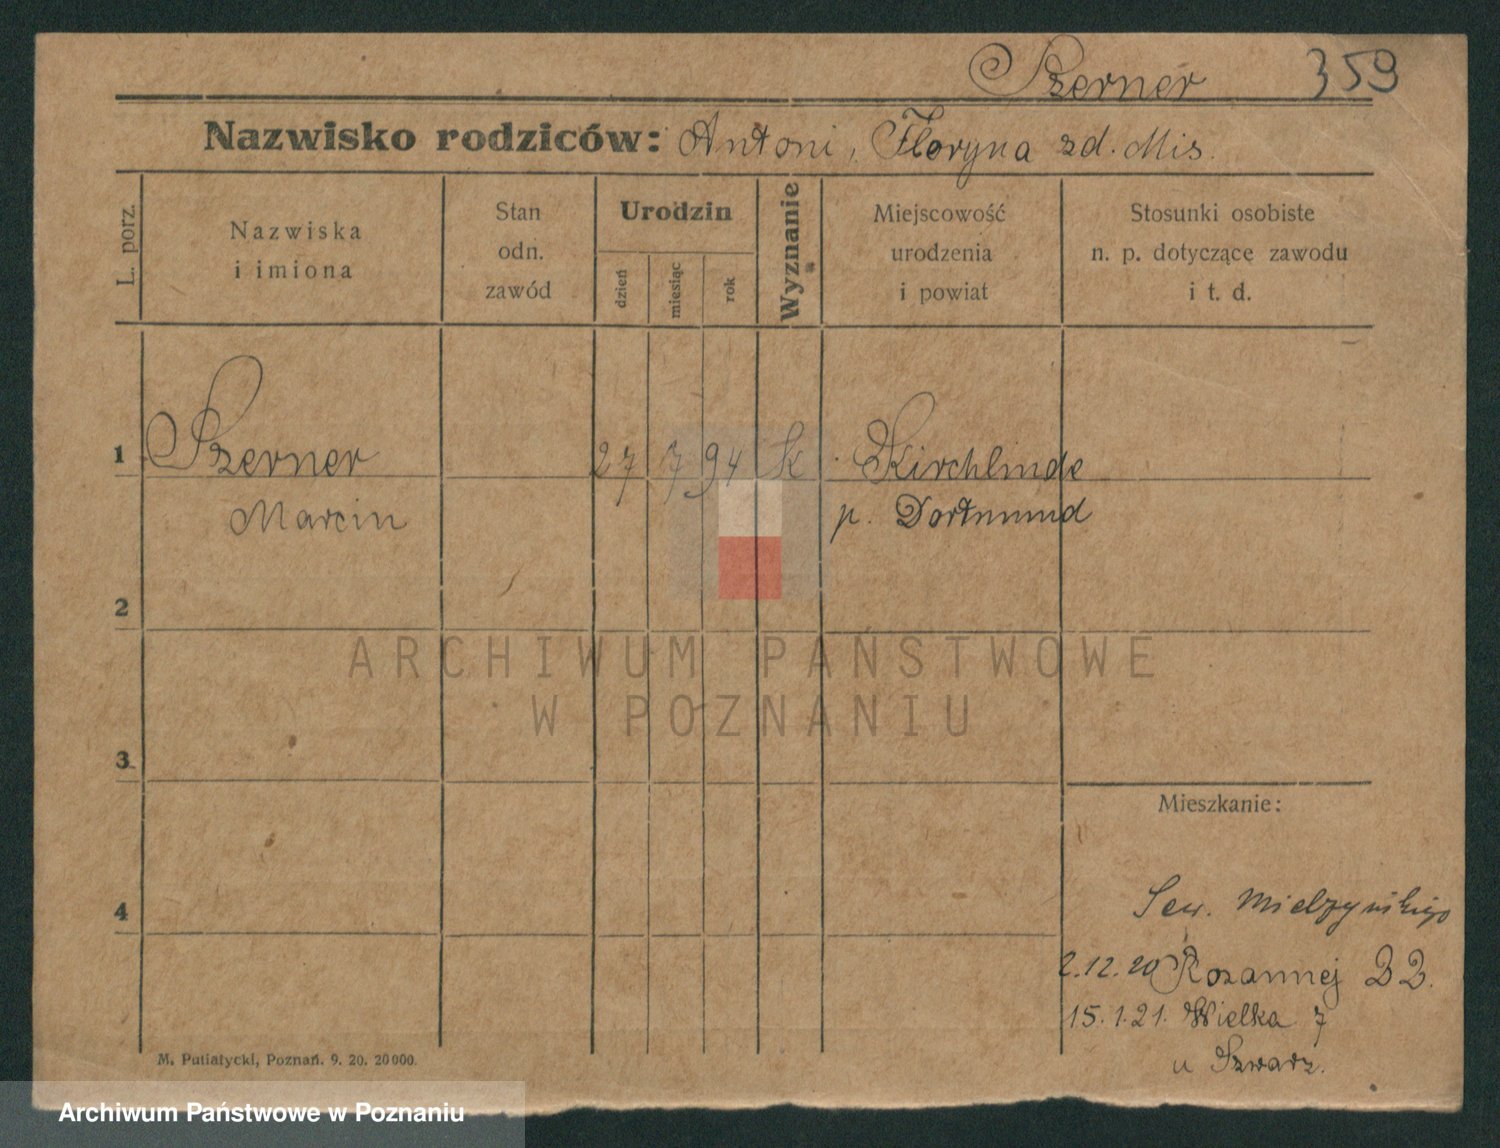 Szerner 359
Nazwisko rodziców: Antoni, Floryna zd. Mis.
L. porz.
Nazwiska
i imiona
Stan
odn.
zawód
Urodzin
dzień
miesiąc
rok
Wyznanie
Miejscowość
urodzenia
i powiat
Stosunki osobiste
n. p. dotyczące zawodu
i t. d.
1 Szerner 27 7 94 k. Kirchlinde
Marcin p. Dortmund
2
ARCHIWUM PAŃSTWOWE
W POZNANIU
3
Mieszkanie:
4
Sew. Mielżyńskiego
2.12.20 Rozannej 22.
15.1.21. Wielka 7
u Szwarz.
M. Putiatycki, Poznań. 9. 20. 20000.
Archiwum Państwowe w Poznaniu